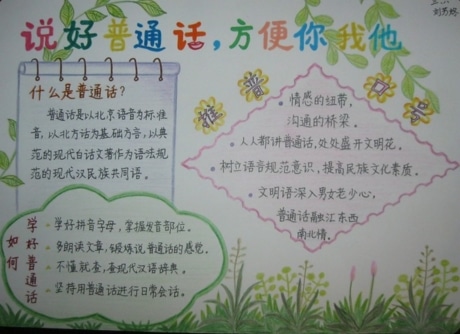 说好普通话，方便你我他
什么是普通话？
普通话是以北京语音为标准
音，以北方话为基础方音，以典
范的现代白话文著作为语法规
范的现代汉民族共同语。
推普口号
情感的纽带，
沟通的桥梁。
人人都讲普通话，处处盛开文明花。
树立语音规范意识，提高民族文化素质。
文明语深入男女老少心，
普通话融汇东西
南北情。
如何学好普通话
学好拼音字母，掌握发音部位。
多朗读文章，锻炼说普通话的感觉。
不懂就查，查现代汉语辞典。
坚持用普通话进行日常会话。